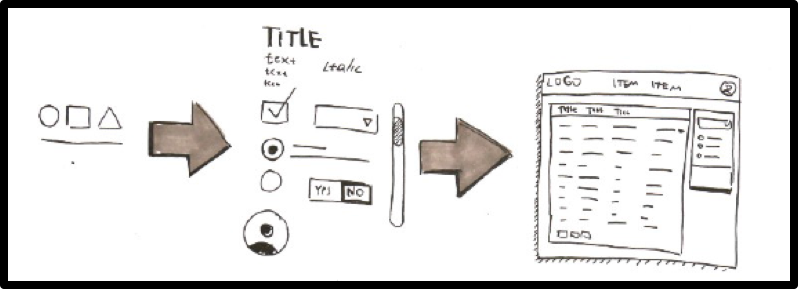 TITLE
text
text
text
Italic
YES NO
LOGO ITEM ITEM
Title Title Title